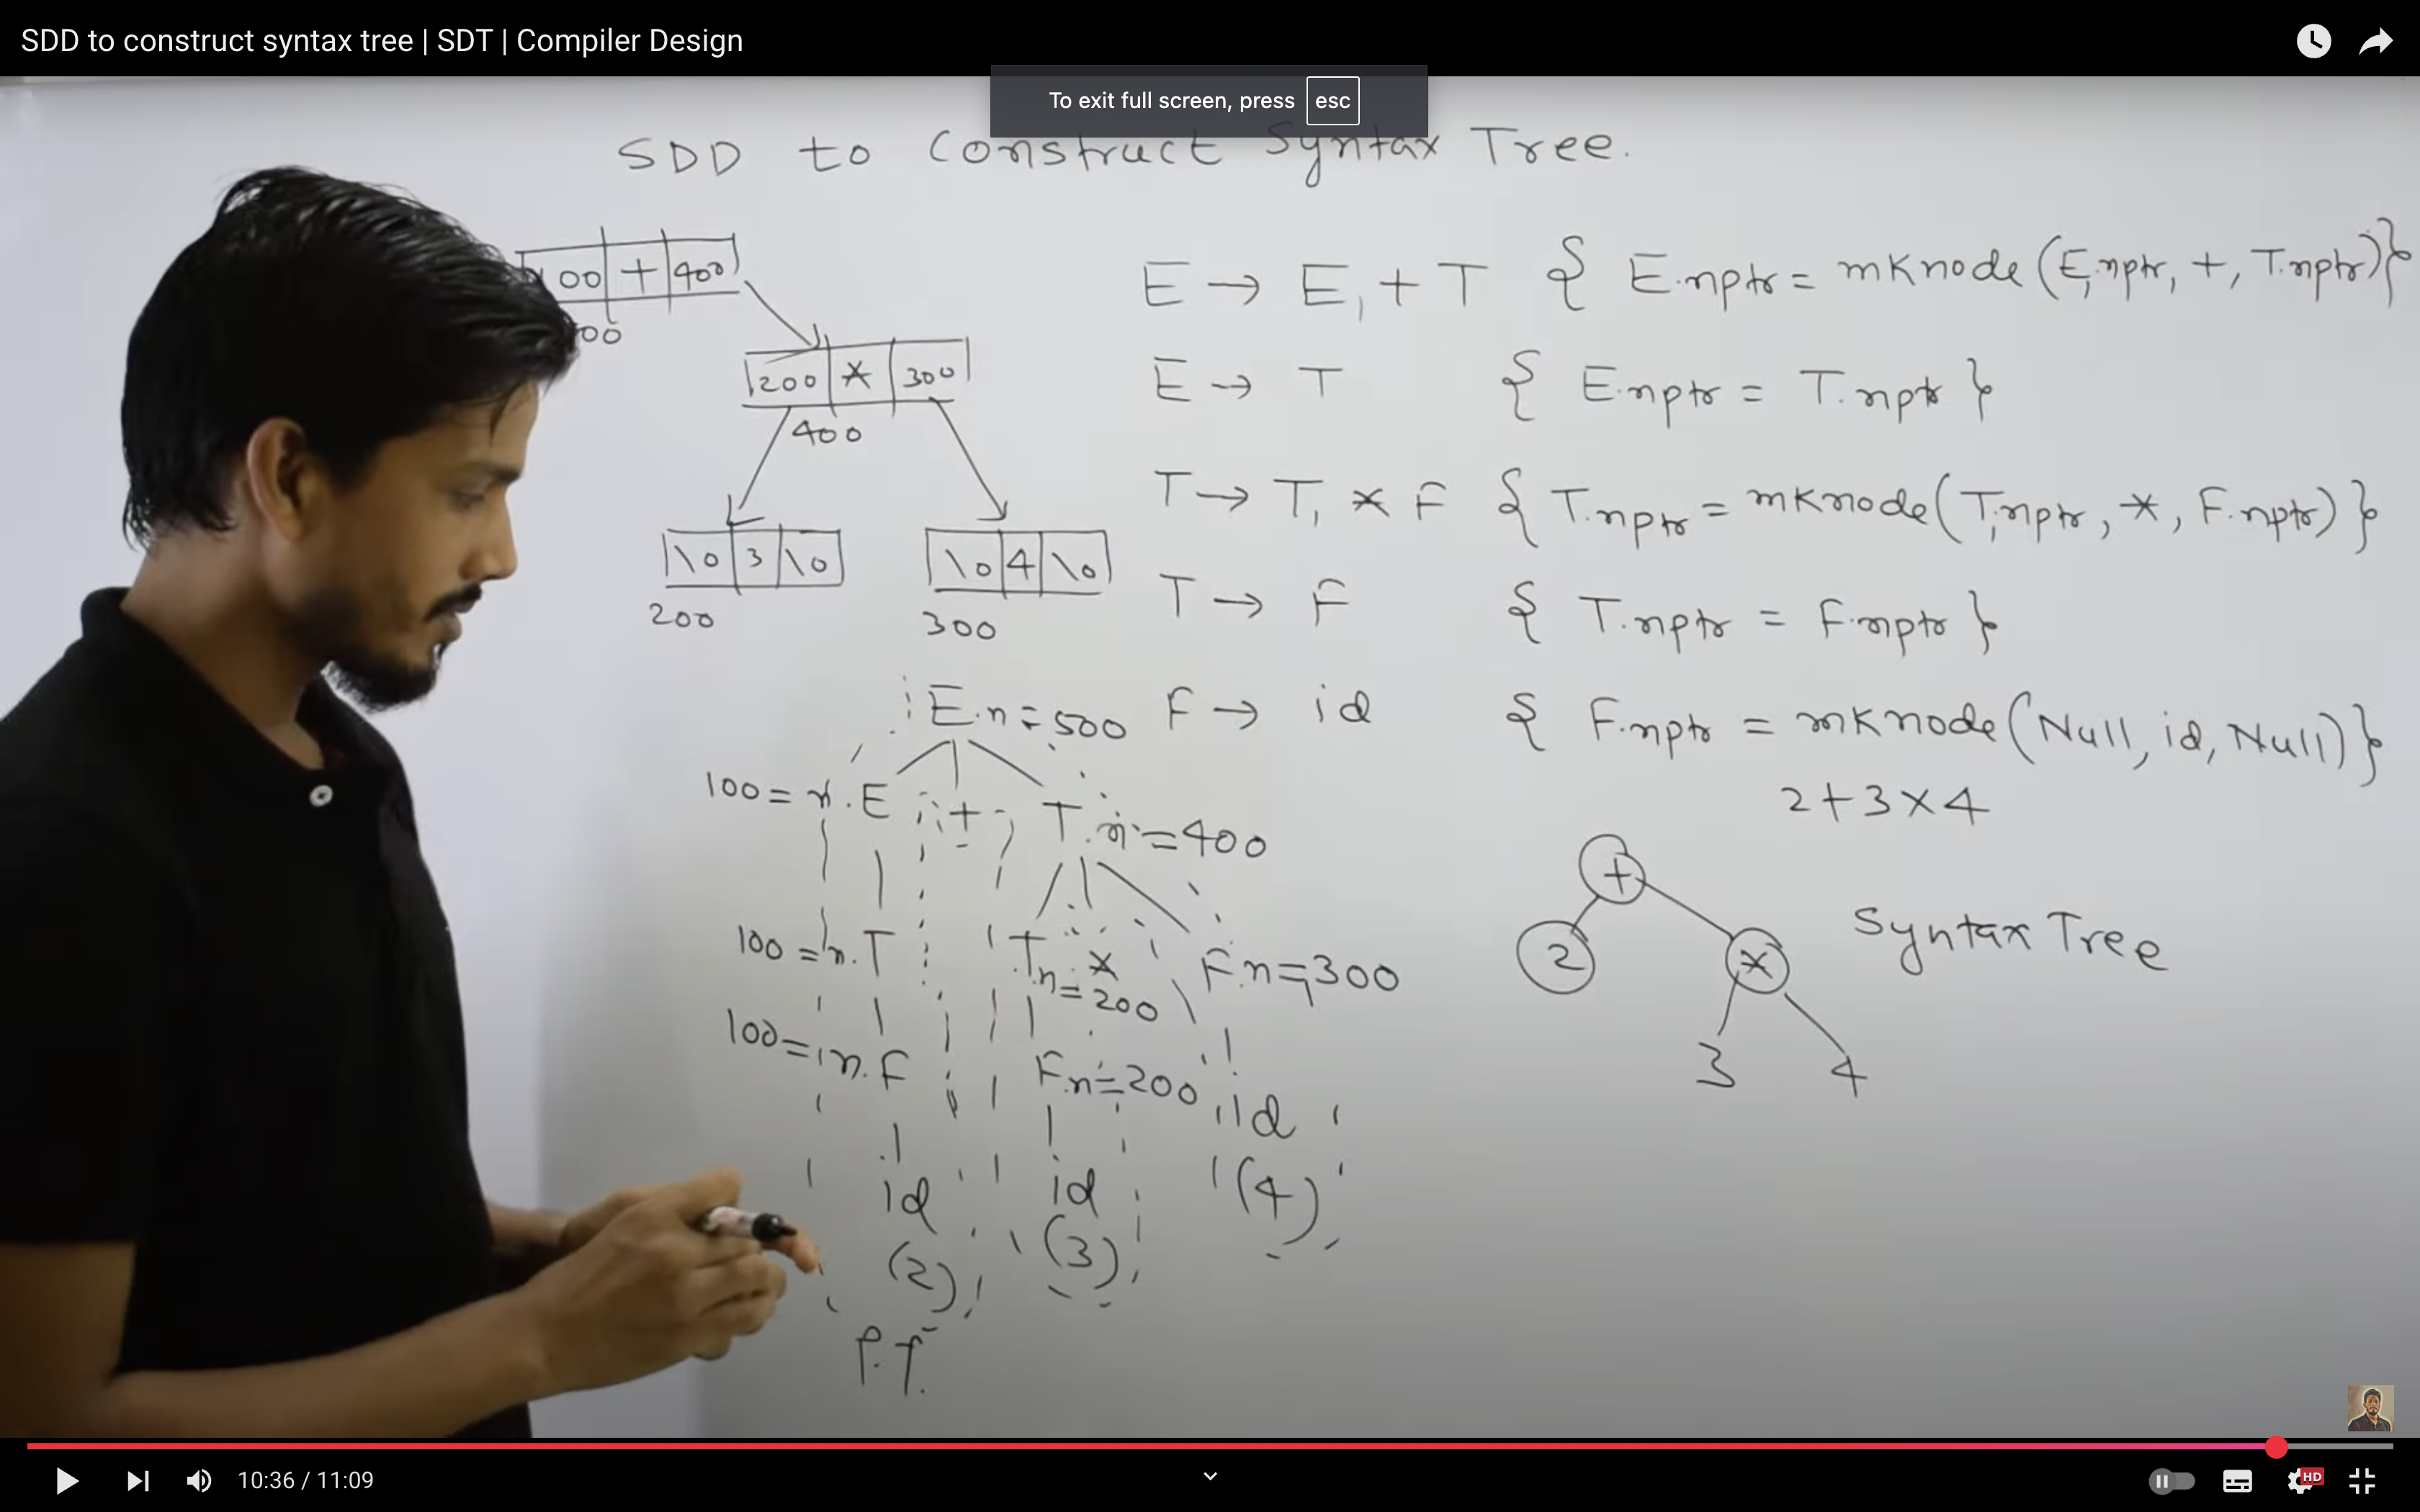 SDD to construct syntax tree | SDT | Compiler Design
To exit full screen, press esc
SDD to Construct Syntax Tree.
00 + 400
00
200 * 300
400
\0 3 \0
200
\0 4 \0
300
E → E₁ + T { E.nptr = mknode (E₁.nptr, +, T.nptr)}
E → T { E.nptr = T.nptr }
T → T₁ * F { T.nptr = mknode(T₁.nptr, *, F.nptr) }
T → F { T.nptr = F.nptr }
F → id { F.nptr = mknode(Null, id, Null)}
E.n = 500
100 = n.E + T.n = 400
100 = n.T T.n = 200 * F.n = 300
100 = n.F F.n = 200 id
id id (4)
(2) (3)
P.T.
2+3×4
+
2 *
3 4
Syntax Tree
10:36 / 11:09
HD